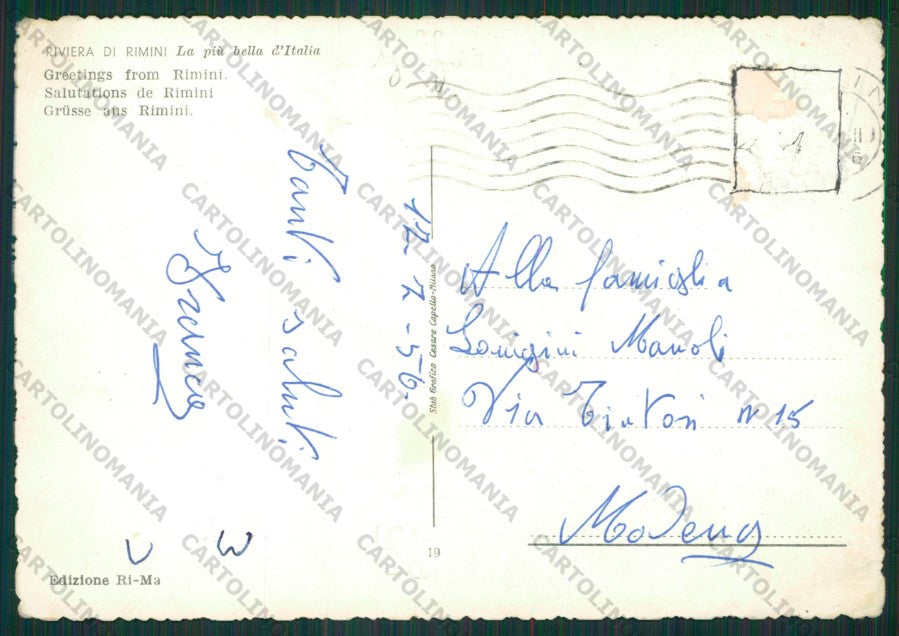 RIVIERA DI RIMINI La più bella d'Italia
Greetings from Rimini.
Salutations de Rimini
Grüsse aus Rimini.
12-7-56.
Tanti saluti
Franco
Alla famiglia
Manoli
Via Tintori N 15
Modena
Stab Grafico Cesare Capello-Milano
19
Edizione Ri-Ma
CARTOLINOMANIA